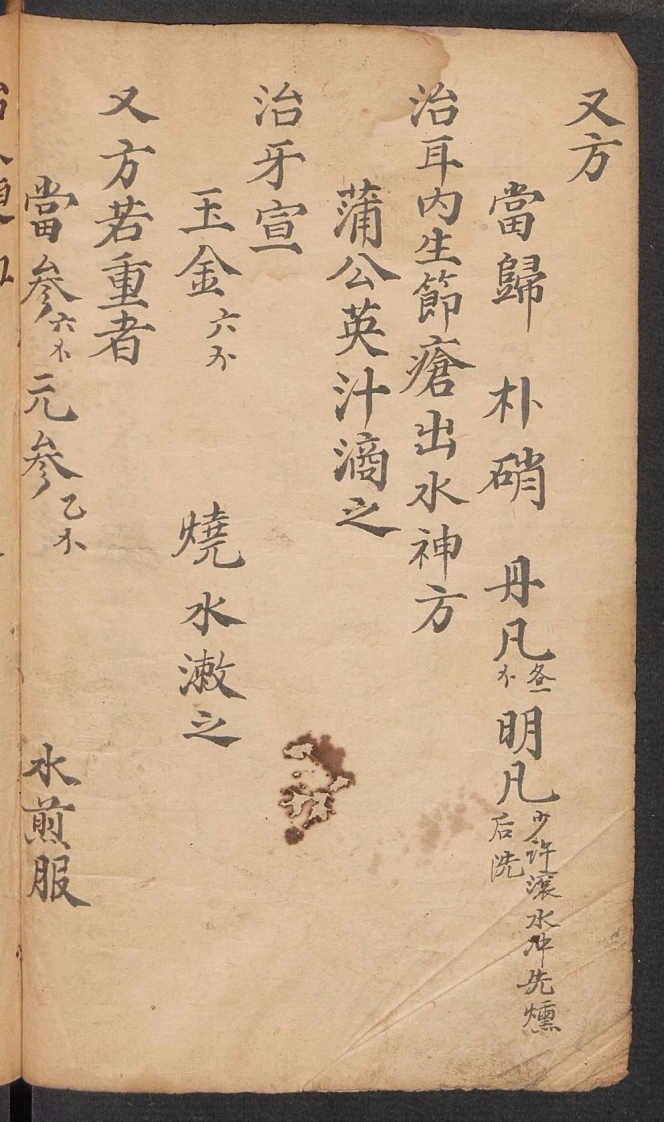 又方
當歸 朴硝 丹凡各一木 明凡少许滚水冲先燻后洗
治耳内生節瘡出水神方
蒲公英汁滴之
治牙宣
玉金六分 燒水漱之
又方若重者
當參六木 元參乙木 水煎服